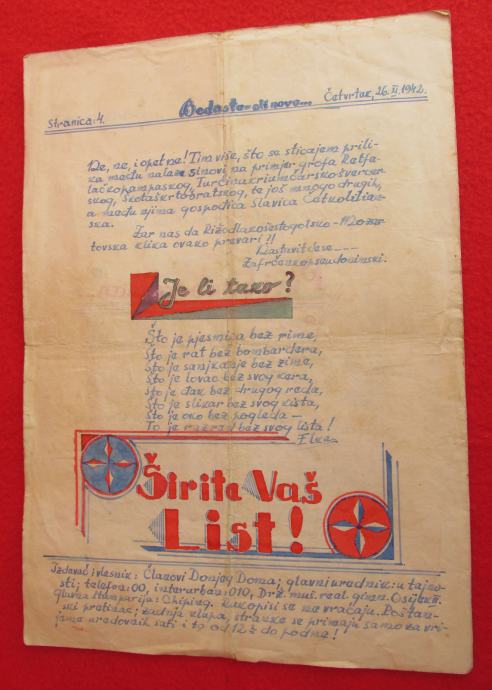 Stranica: 4. Bedasto-ali novo... Četvrtak, 26. XI. 1942.
Ne, ne, i opet ne! Tim više, što se sticajem prili-
ka među nalaze sinovi na primjer grofa Retfa-
lačkopampaskog, Turčinakriumčarskošvercer
skog, Škotaškrtobratskog, te još mnogo drugih,
a među njima gospodjica Slavica
ska.
Zar nas da
tovska klika ovako prevari !!
Nastavit će se ----
Zafrčenkopseudonimski.
Je li tako?
Što je pjesmica bez rime,
Što je rat bez bombardera,
Što je sanjkanje bez zime,
Što je lovac bez svog kera,
Što je đak bez drugog reda,
Što je slikar bez svog kista,
Što je oko bez pogleda —
To je razred bez svog lista!
Širite Vaš
List!
Izdavač i vlasnik: Članovi Donjeg Doma; glavni urednik: u tajno-
sti; telefon: 00, interurban: 010, Drž. muš. real. gimn. Osijek II.
Glavna štamparija: Chiping. Rukopisi se ne vraćaju. Poštan-
ski pretinac: zadnja klupa, stranke se primaju samo za vri-
jeme uredovnih sati i to od 12½ do podne!